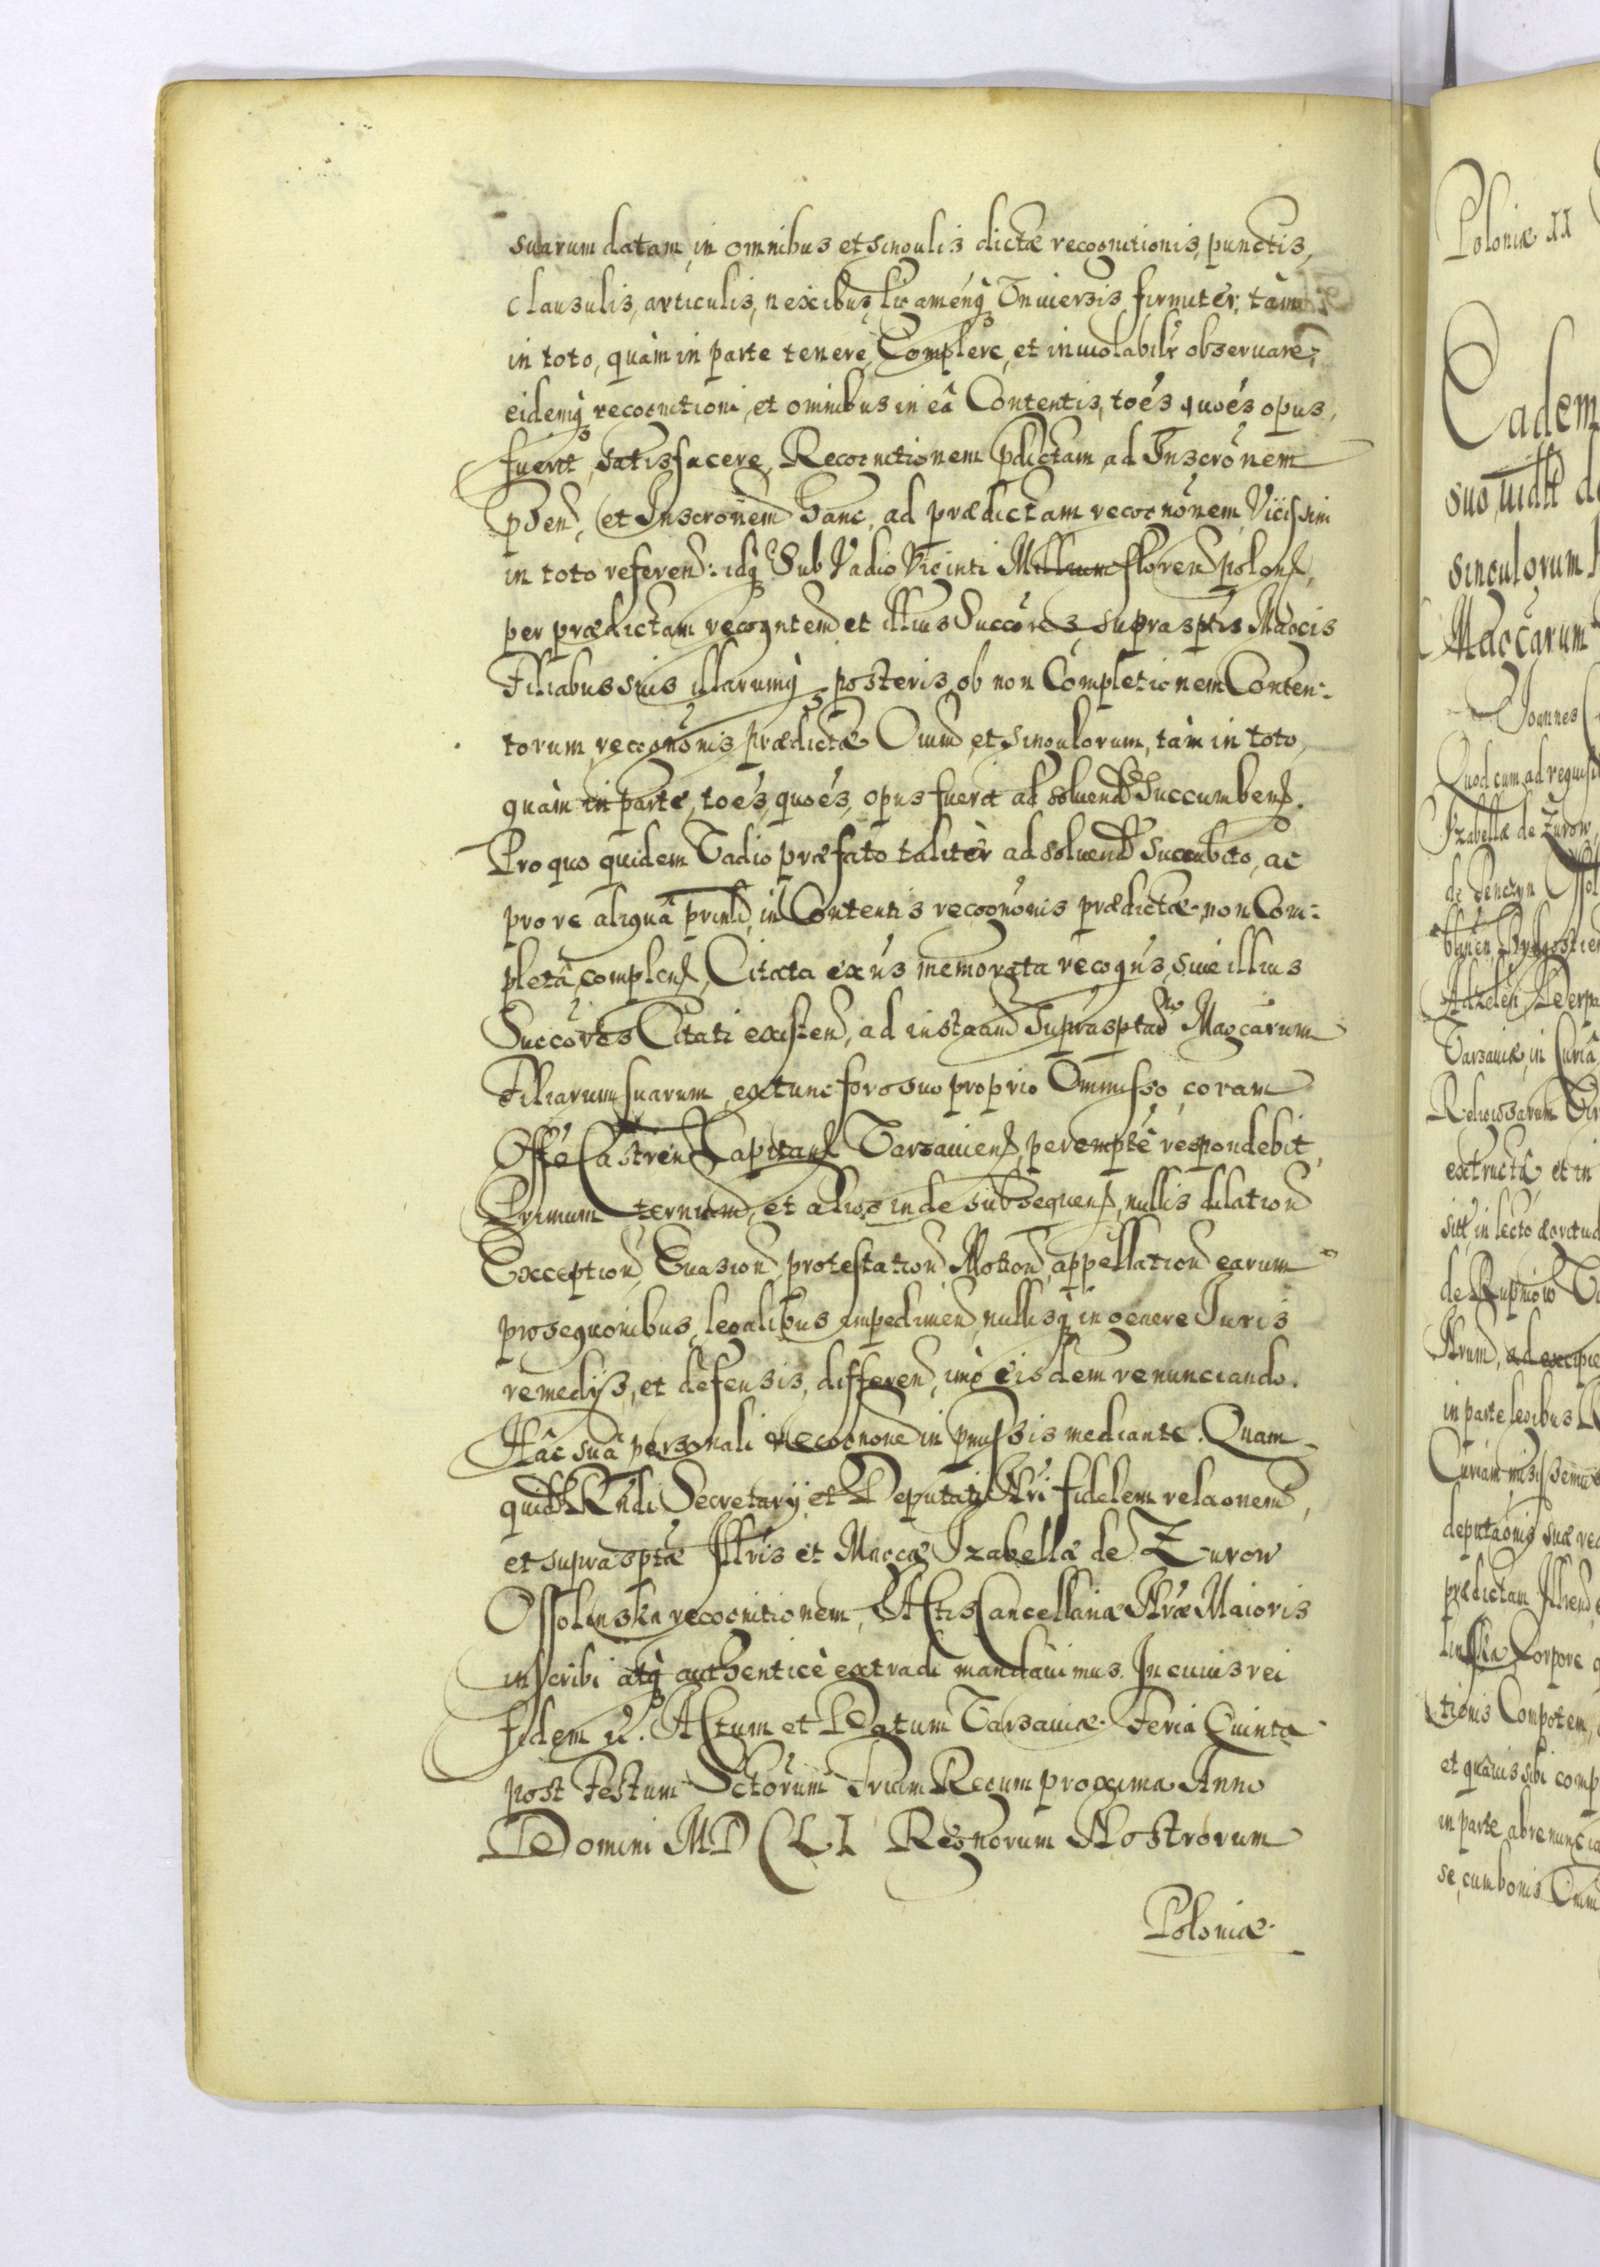 suarum datam, in omnibus et singulis dictæ recognitionis, punctis,
Clausulis, articulis, nexibus, ligamenq́ Vniuersis firmiter, tàm
in toto, quàm in parte tenere, Complere, et inuiolabilr obseruare,
eidemq́ recognitioni, et omnibus in eâ Contentis, toés quoés opus
fuerit, satisfacere, Recognitionem pdictam, ad Inscrõnem
pñtem, et Inscrõnem hanc, ad prædictam recognõnem, Vicissim
in toto referend: idq́ Sub Vadio Viginti Millium florend polon,
per prædictam recogntem et illius Succôres, suprasptis Magcis
Filiabus suis illarumq́ posteris, ob non Completionem Conten:
torum, recognõnis prædictæ Oium et singulorum, tàm in toto,
quàm in parte, toés, quoés, opus fuerit ad soluend Succumben.
Pro quo quidem Vadio præfato taliter ad soluend Succubito, ac
pro re aliquâ princli, in Contentis recognõnis prædictæ, non Com:
pletâ, complen, Citata ex ńs memorata recogńs, siue illius
Succôres Citati existen, ad instaam Suprasptarum Magcarum
Filiarum suarum, extunc foro suo proprio Ommisso, coram
Offo Castren Capitan Varsauien, peremptè respondebit,
Primum terminum, et alios inde subsequen, nullis dilation
Exception, Euasion, protestation, Motion, appellation earum
prosequonibus, legalibus impedimen, nullisq́ in genere Iuris
remedys, et defensis, differen, imò eisdem renunciando.
Hâc suâ personali recognone in pmissis mediante. Quam
quidem Rńdi Secretarij et Deputati Nri fidelem relaonem,
et supra sptæ Illris et Magcæ Izabellæ de Zurow
Ossolinska recognitionem, Actis Cancellariæ Nræ Maioris
inscribi atq́ authenticè extradi mandauimus. In cuius rei
fidem &. Actum et Datum Varsauiæ. Feria Quinta
post Festum Sctorum Trium Regum proxima Anno
Domini MDCLI Regnorum Nostrorum
Poloniæ.
Poloniæ II
Eadem
suo, uidtt
singulorum
Magcarum
Joannes
Quod cum ad
Izabellæ de Zurow,
de Tenczyn
Varsauiæ, in Curiâ
extructâ, et in
de Rupniow
in parte legibus
Curiam misissemus
deputaonis suæ
prædictam
linska Corpore
tionis Compotem,
et quâuis sibi
in parte
se, cum bonis